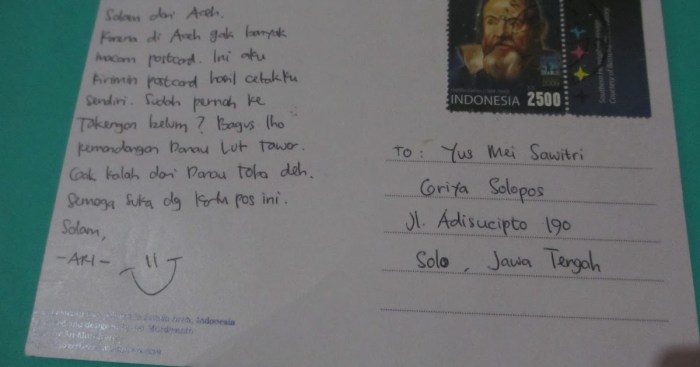 Salam dari Aceh.
Karena di Aceh gak banyak
macam postcard. Ini aku
kirimin postcard hasil cetakku
sendiri. Sudah pernah ke
Takengon belum? Bagus lho
pemandangan Danau Lut Tawar.
Gak kalah dari Danau Toba deh.
Semoga suka dg kartu pos ini.
Salam,
-ARI-
INDONESIA 2500
2009
TO: Yus Mei Sawitri
Griya Solopos
Jl. Adisucipto 190
Solo, Jawa Tengah
Indonesia